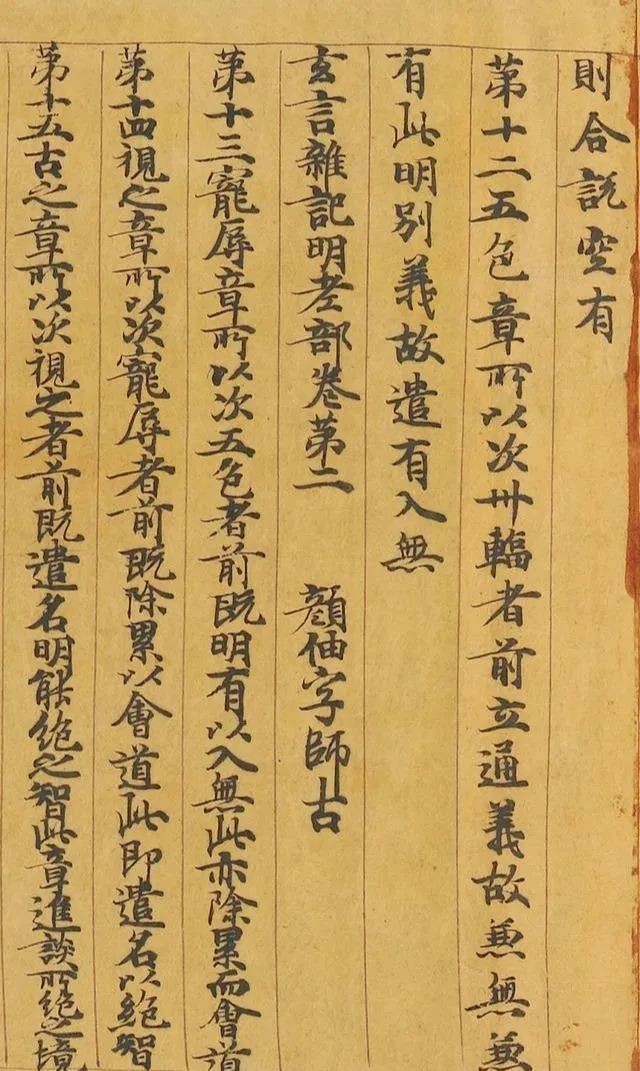 則合說空有
第十二五色章所以次卅輻者前立通義故兼無兼
有此明別義故遣有入無
玄言雜記明老部卷第二 顏伷字師古
第十三寵辱章所以次五色者前既明有以入無此亦除累而會道
第十四視之章所以次寵辱者前既除累以會道此即遣名以絕智
第十五古之章所以次視之者前既遣名明能絕之智此章進談所絕之境